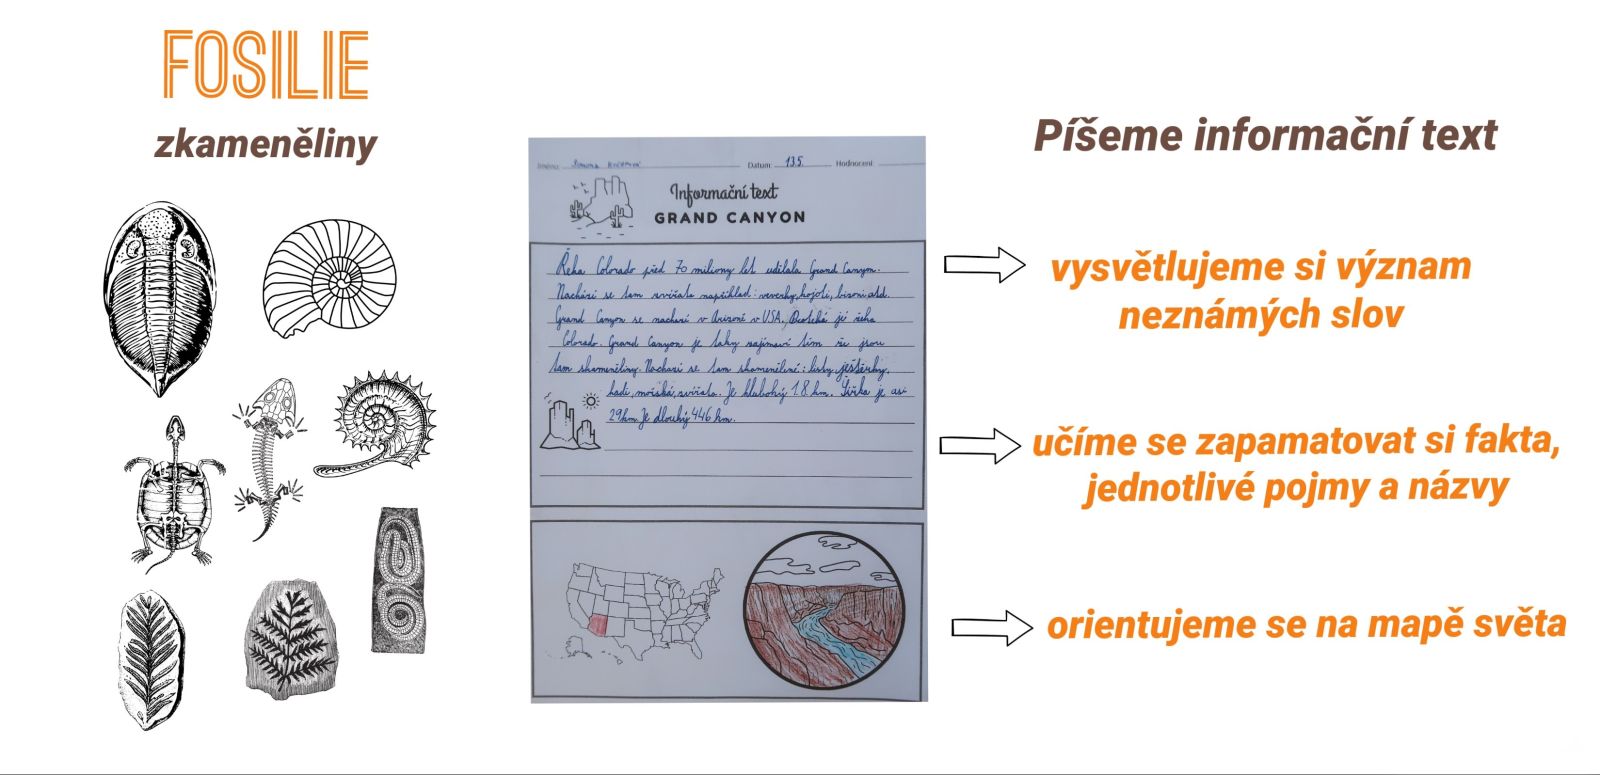 FOSILIE
zkameněliny
Píšeme informační text
Datum: 13.5. Hodnocení
Informační text
GRAND CANYON
Řeka Colorado před 70 miliony let udělala Grand Canyon.
Nachází se tam zvířata například: veverky, kojoti, bizoni atd.
Grand Canyon se nachází v Arizoně v USA. Protéká jí řeka
Colorado. Grand Canyon je taky zajímaví tím že jsou
tam skameněliny. Nachází se tam skamenělené: listy, ještěrky,
hadi, mořská, zvířata. Je hluboký 1.8 km. Šířka je asi
29km Je dlouhý 446 km.
vysvětlujeme si význam
neznámých slov
učíme se zapamatovat si fakta,
jednotlivé pojmy a názvy
orientujeme se na mapě světa